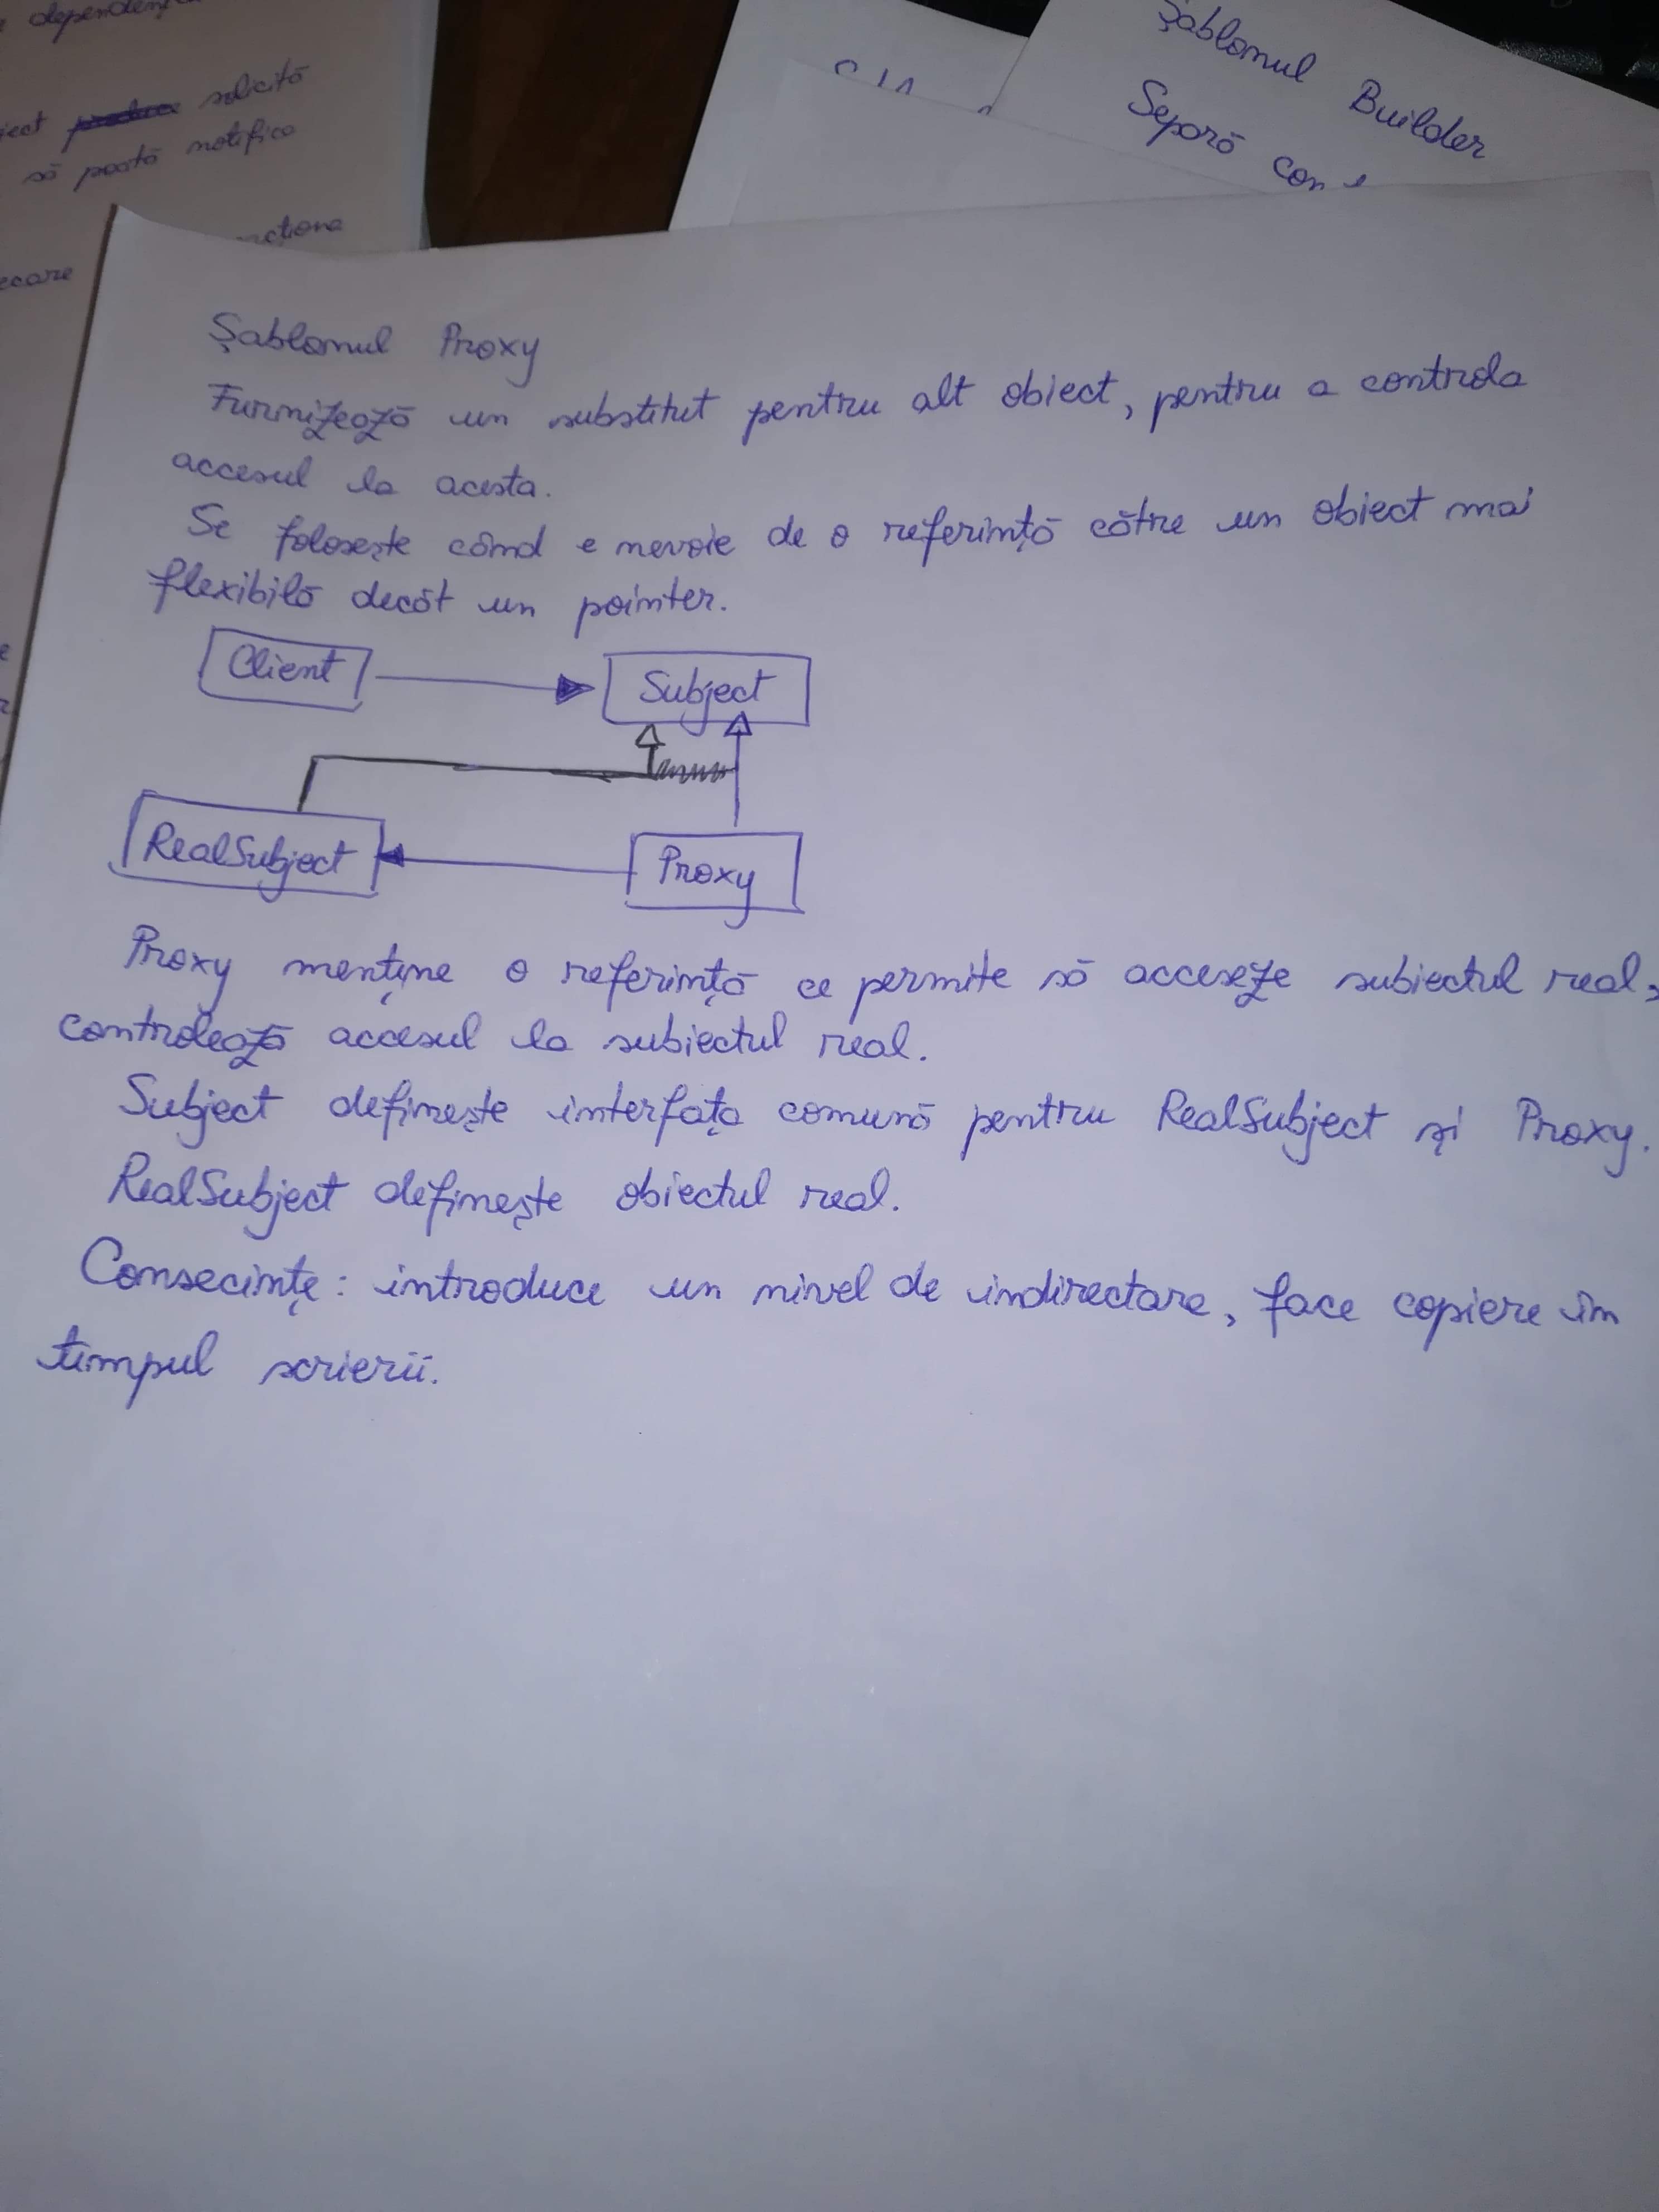 dependenț
ject solicită
să poată notifica
ecare
Șablonul Builder
Separă con
Șablonul Proxy
Furnizează un substitut pentru alt obiect, pentru a controla
accesul la acesta.
Se folosește când e nevoie de o referință către un obiect mai
flexibilă decât un pointer.
Client
Subject
RealSubject
Proxy
Proxy menține o referință ce permite să acceseze subiectul real,
controlează accesul la subiectul real.
Subject definește interfața comună pentru RealSubject și Proxy.
RealSubject definește obiectul real.
Consecințe: introduce un nivel de indirectare, face copiere în
timpul scrierii.